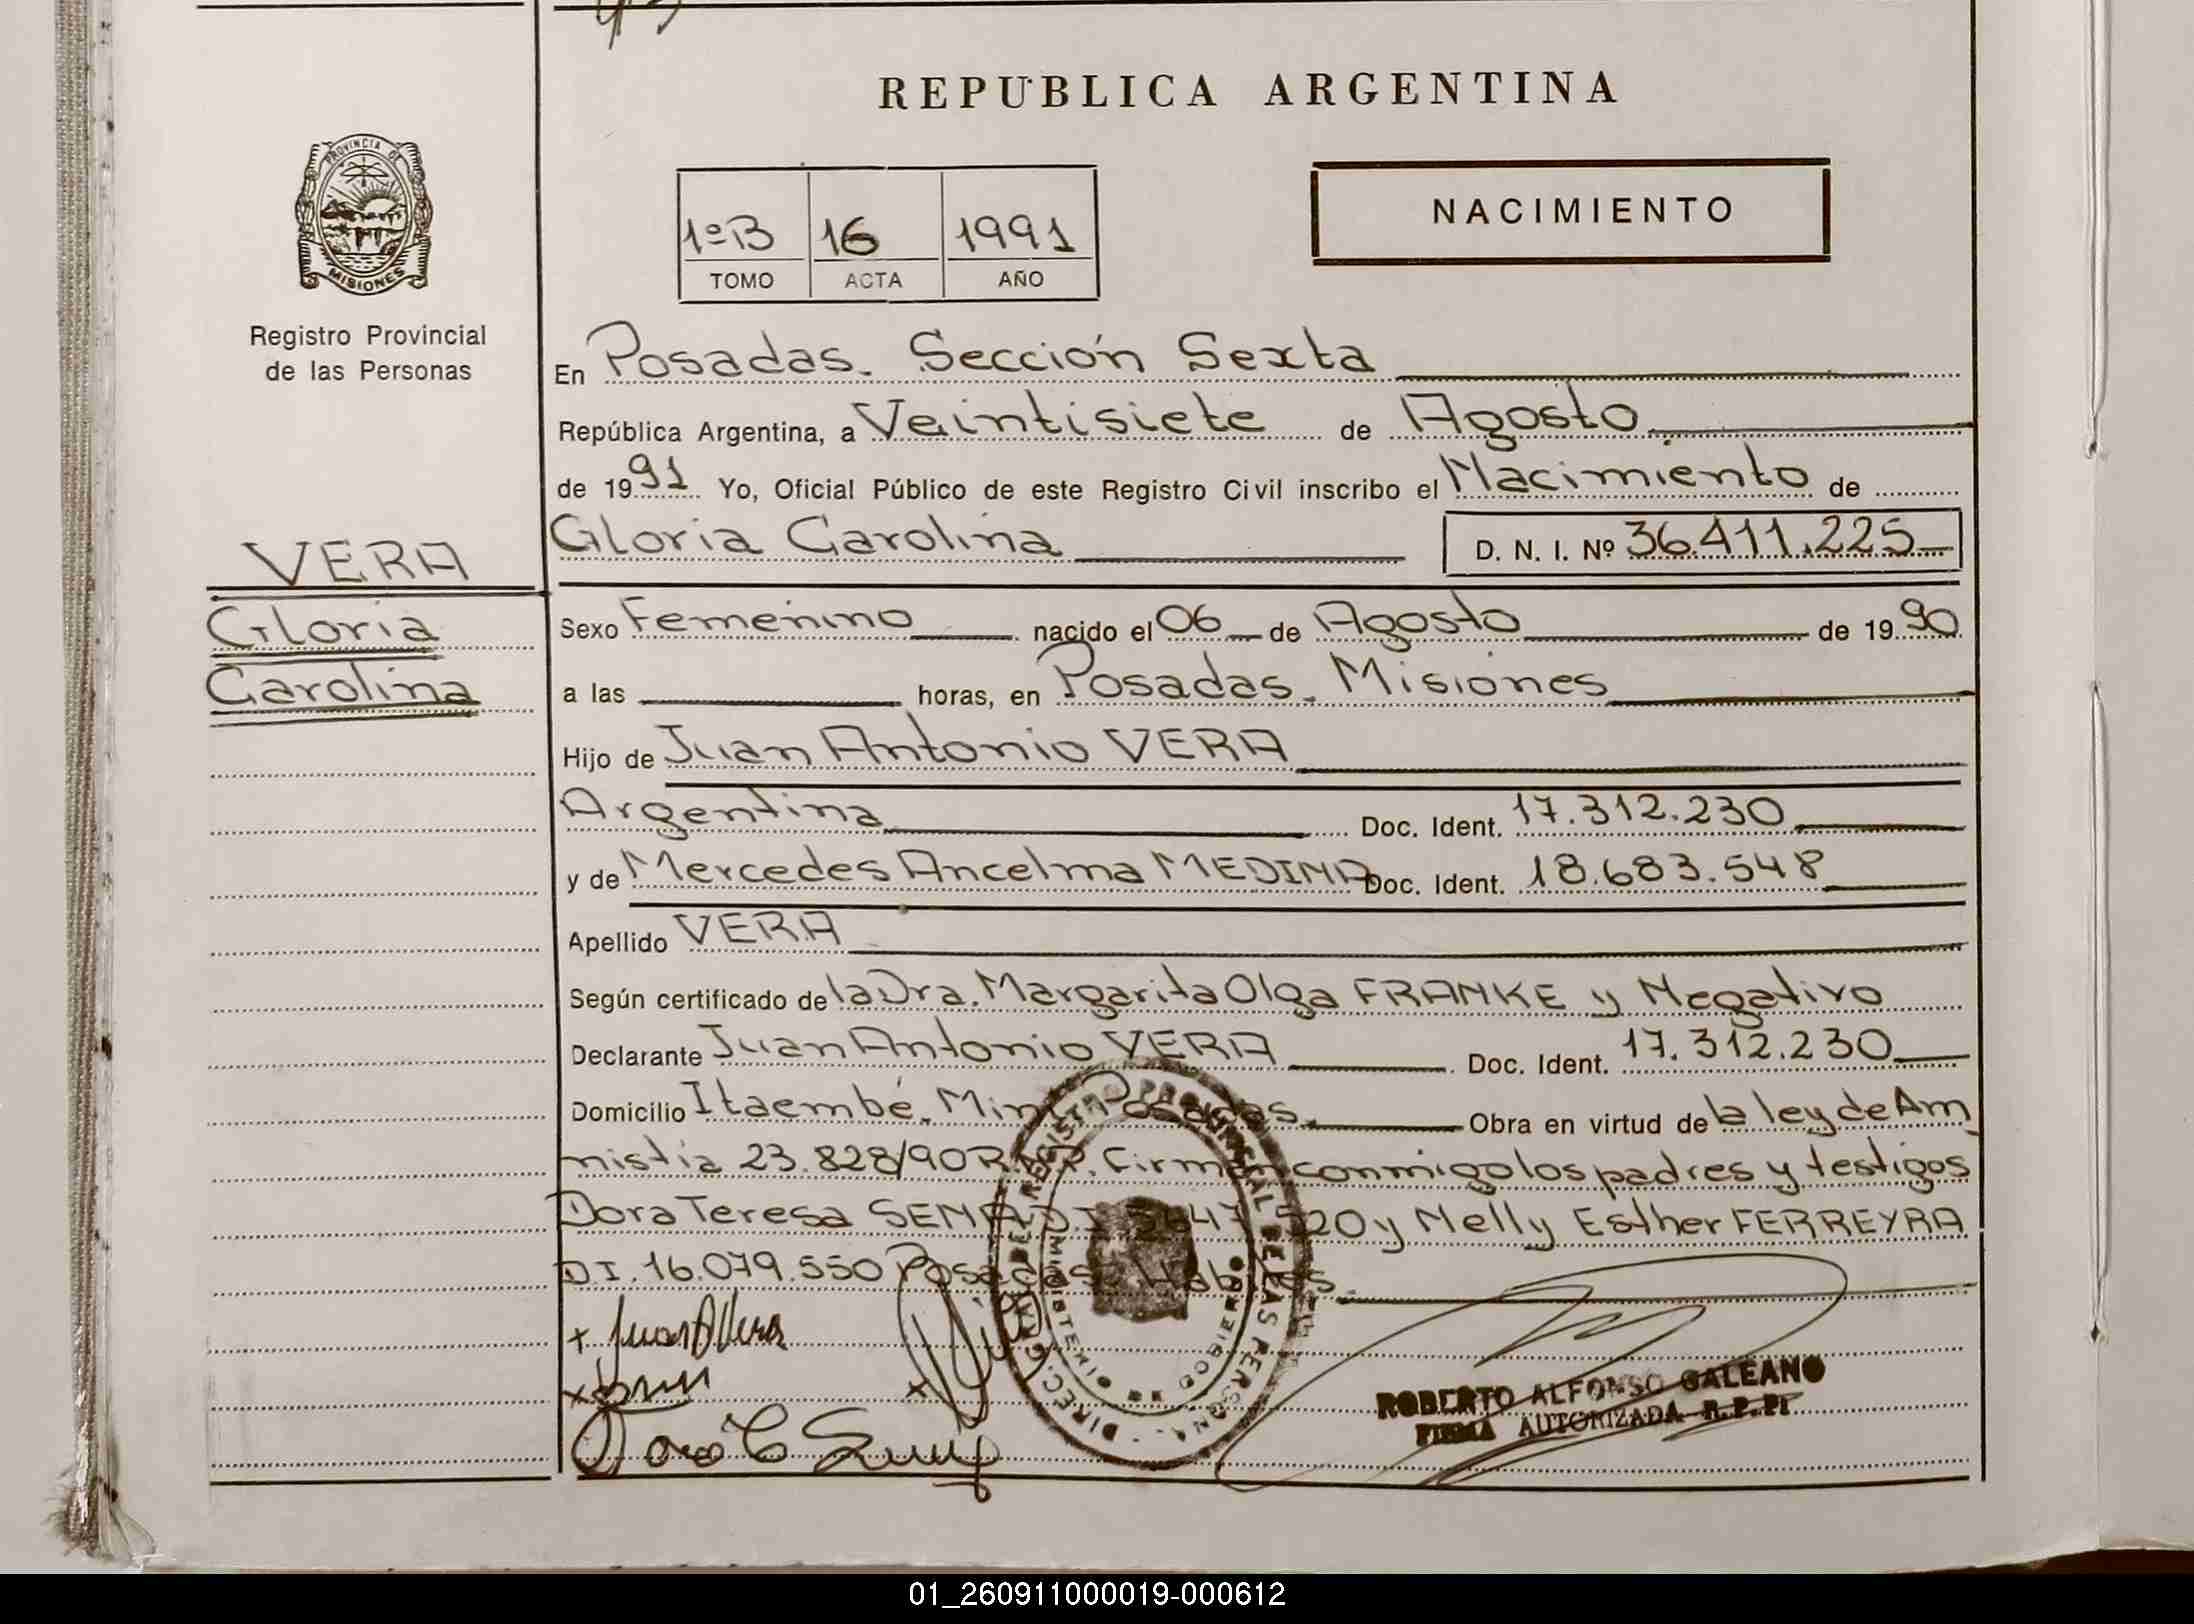 REPUBLICA ARGENTINA
PROVINCIA DE
MISIONES
Registro Provincial
de las Personas
1º B 16 1991
TOMO ACTA AÑO
NACIMIENTO
En Posadas. Sección Sexta
República Argentina, a Veintisiete de Agosto
de 1991 Yo, Oficial Público de este Registro Civil inscribo el Nacimiento de
Gloria Carolina D. N. I. Nº 36.411.225
VERA
Gloria
Carolina
Sexo Femenino nacido el 06 de Agosto de 1990
a las horas, en Posadas. Misiones
Hijo de Juan Antonio VERA
Argentina Doc. Ident. 17.312.230
y de Mercedes Ancelma MEDINA Doc. Ident. 18.683.548
Apellido VERA
Según certificado de la Dra. Margarita Olga FRANKE y Negativo
Declarante Juan Antonio VERA Doc. Ident. 17.312.230
Domicilio Itaembé. Miní Posadas Obra en virtud de la ley de Am
nistia 23.828/90 R.N.P. Firman conmigo los padres y testigos
Dora Teresa SENA D.I. y Nelly Esther FERREYRA
D.I. 16.079.550 Posadas Habiles
x Juan A Vera
x
x
ROBERTO ALFONSO GALEANO
FIRMA AUTORIZADA R.P.P.
01_260911000019-000612